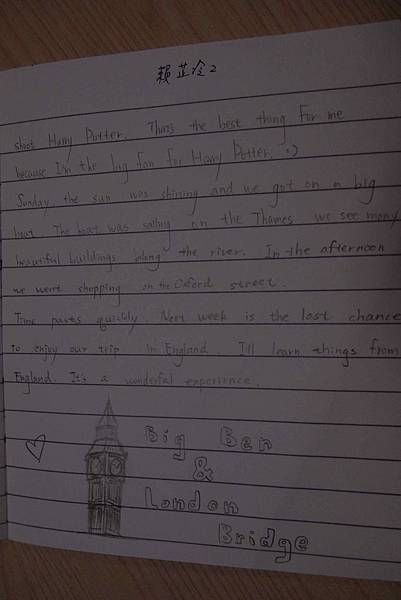 賴芷泠2
shoot Harry Potter. Thats the best thing for me
because I'm the big fan for Harry Potter. =)
Sunday the sun was shining and we got on a big
boat. The boat was sailing on the Thames. we see many
beautiful buildings along the river. In the afternoon
we went shopping on the Oxford street.
Time pasts quickly. Next week is the last chance
to enjoy our trip in England. I'll learn things from
England. It's a wonderful experience.
Big Ben
&
London
Bridge